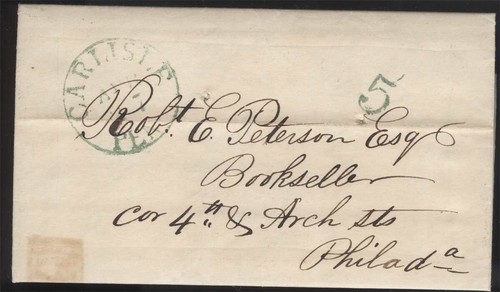 CARLISLE
Pa.
5
Robt. E. Peterson Esq
Bookseller
cor 4th & Arch sts
Philada